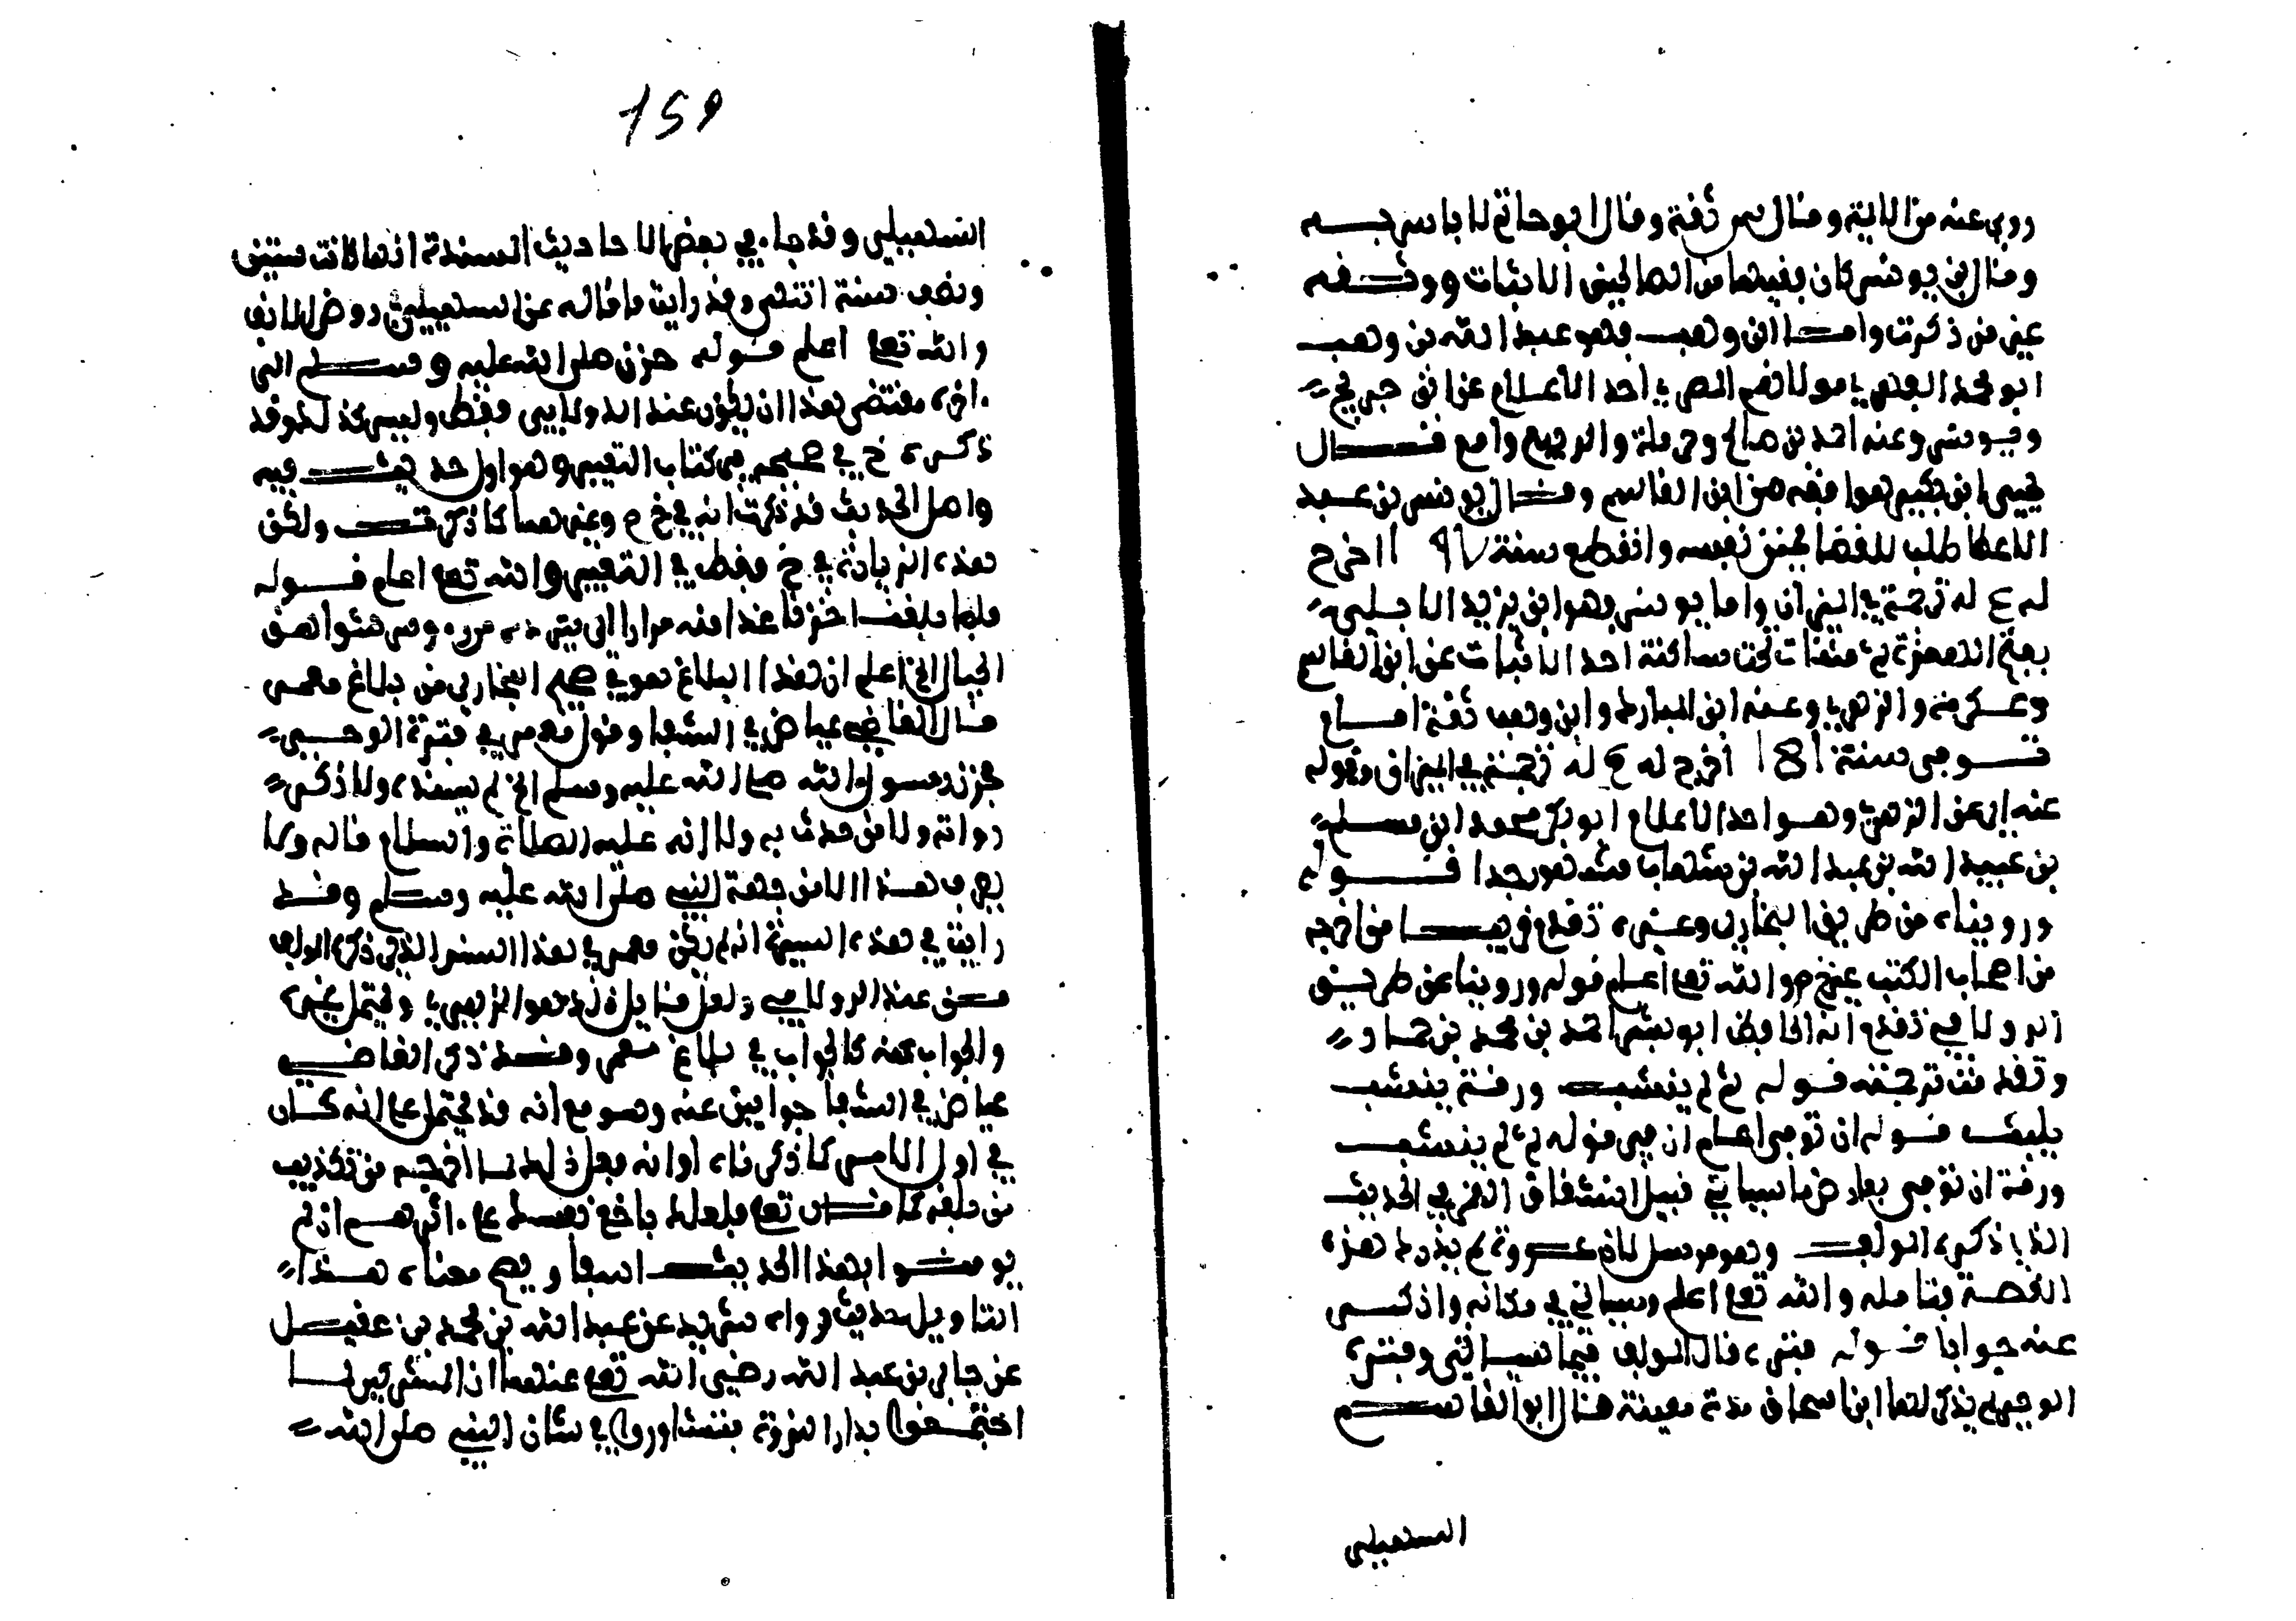 روى عنه من الايمة وقال س ثقة وقال ابو حاتم لا باس به
وقال ابن يونس كان فقيها من الصالحين الاثبات ووثقه
غير من ذكرت واما ابن وهب فهو عبد الله بن وهب
ابو محمد الفهري مولاهم المصري احد الاعلام عن ابن جريج
ويونس وعنه احمد بن صالح وحرملة والربيع وامم قال
يحيى ابن بكير هو افقه من ابن القاسم وقال يونس بن عبد
الاعلا طلب للقضا فجنن نفسه وانقطع سنة ١٩٧ اخرج
له ع له ترجمة في الميزان واما يونس فهو ابن يزيد الايلي
بفتح الهمزة ثم مثناة تحت ساكنة احد الاثبات عن القاسم
وعكرمة والزهري وعنه ابن المبارك وابن وهب ثقة امام
توفي سنة 181 اخرج له ع له ترجمة في الميزان وقوله
عنه اي عن الزهري وهو احد الاعلام ابو بكر محمد ابن مسلم
بن عبيد الله بن عبد الله بن شهاب مشهور جدا قوله
ورويناه من طريق البخاري وغيره تقدم قريبا من اخرجه
من اصحاب الكتب غير خ م والله تعا اعلم قوله وروينا عن طريق
الدولابي تقدم انه الحافظ ابو بشر احمد بن محمد بن حماد
وتقدمت ترجمته قوله ثم لم ينشب ورقة ينشب
يلبث قوله ان توفي اعلم ان في قوله ثم لم ينشب
ورقة ان توفي يعارض ما سياتي قبيل انشقاق القمر في الحديث
الذي ذكره المولف وهو مرسل لان عروة لم يدرك هذه
القصة فتامله والله تعا اعلم وسياتي في مكانه واذكر
عنه جوابا قوله فترة قال المولف فيما سياتي وفترة
الوحي لم يذكر لها ابن اسحاق مدة معينة قال ابو القاسم
السهيلي
159
السهيلي وقد جاء في بعض الاحاديث المسندة انها كانت سنتين
ونصف سنة انتهى وقد رايت ما قاله عن السهيلي في روض الانف
والله تعا اعلم قوله حزن صلى الله عليه وسلم الى
اخره مقتضى هذا ان يكون عند الدولابي فقط وليس كذلك وقد
ذكره خ في صحيحه في كتاب التعبير وهو اول حديث فيه
واصل الحديث قد ذكرت انه في خ م وغيرهما كما ذكرت ولكن
هذه الزيادة في خ فقط في التعبير والله تعا اعلم قوله
فيما بلغنا حزنا غدا منه مرارا الى يتردى من رءوس شواهق
الجبال الخ اعلم ان هذا البلاغ هو في صحيح البخاري من بلاغ معمر
قال القاضي عياض في الشفا وقول معمر في فترة الوحي
فحزن رسول الله صلى الله عليه وسلم الخ لم يسنده ولا ذكر
رواته ولا من حدث به ولا انه عليه الصلاة والسلام قاله ولا
يعرف هذا الا من جهة النبي صلى الله عليه وسلم وقد
رايت في هذه السيرة انه لم يكن معمر في هذا السند الذي ذكره المولف
من عند الدولابي ولعل قايل ذلك هو الزهري ويحتمل غيره
والجواب عنه كالجواب في بلاغ معمر وقد ذكر القاضي
عياض في الشفا جوابين عنه وهو مع انه قد يحتمل على انه كان
في اول الامر كما ذكرناه او انه فعل ذلك لما اخرجه من تكذيب
من بلغه كما قال تعا فلعلك باخع نفسك على ءاثرهم ان لم
يومنوا بهذا الحديث اسفا ويصح معناه هذا
التاويل حديث رواه شريك عن عبد الله بن محمد بن عقيل
عن جابر بن عبد الله رضي الله تعا عنهما ان المشركين لما
اجتمعوا بدار الندوة فتشاوروا في شان النبي صلى الله